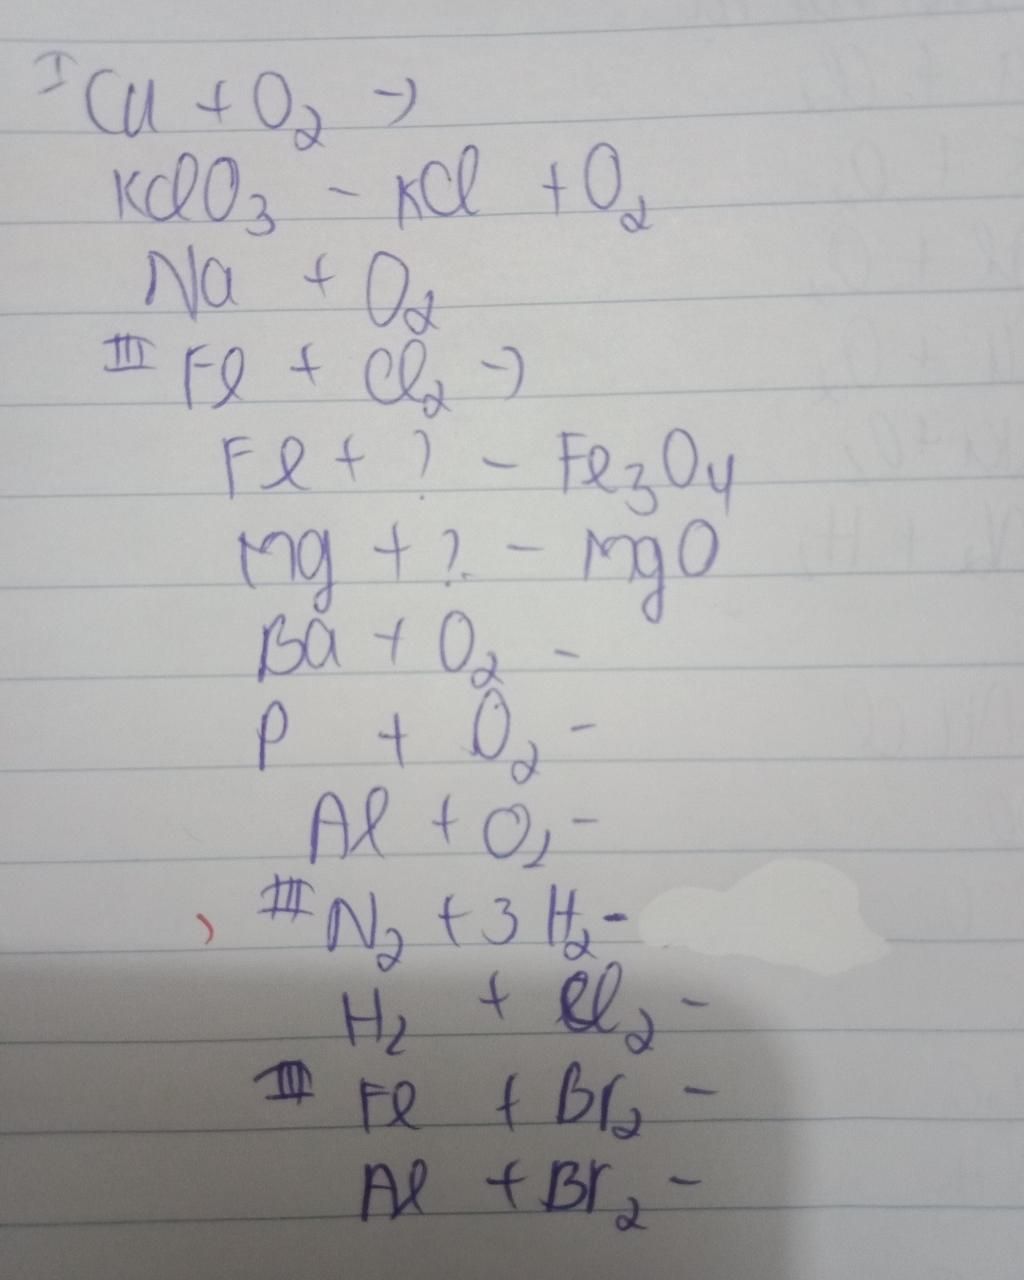 I Cu + O₂ →
KClO₃ - KCl + O₂
Na + O₂
III Fe + Cl₂ →
Fe + ? - Fe₃O₄
Mg + ? - MgO
Ba + O₂ -
P + O₂ -
Al + O₂ -
III N₂ + 3 H₂ -
H₂ + Cl₂ -
III Fe + Br₂ -
Al + Br₂ -